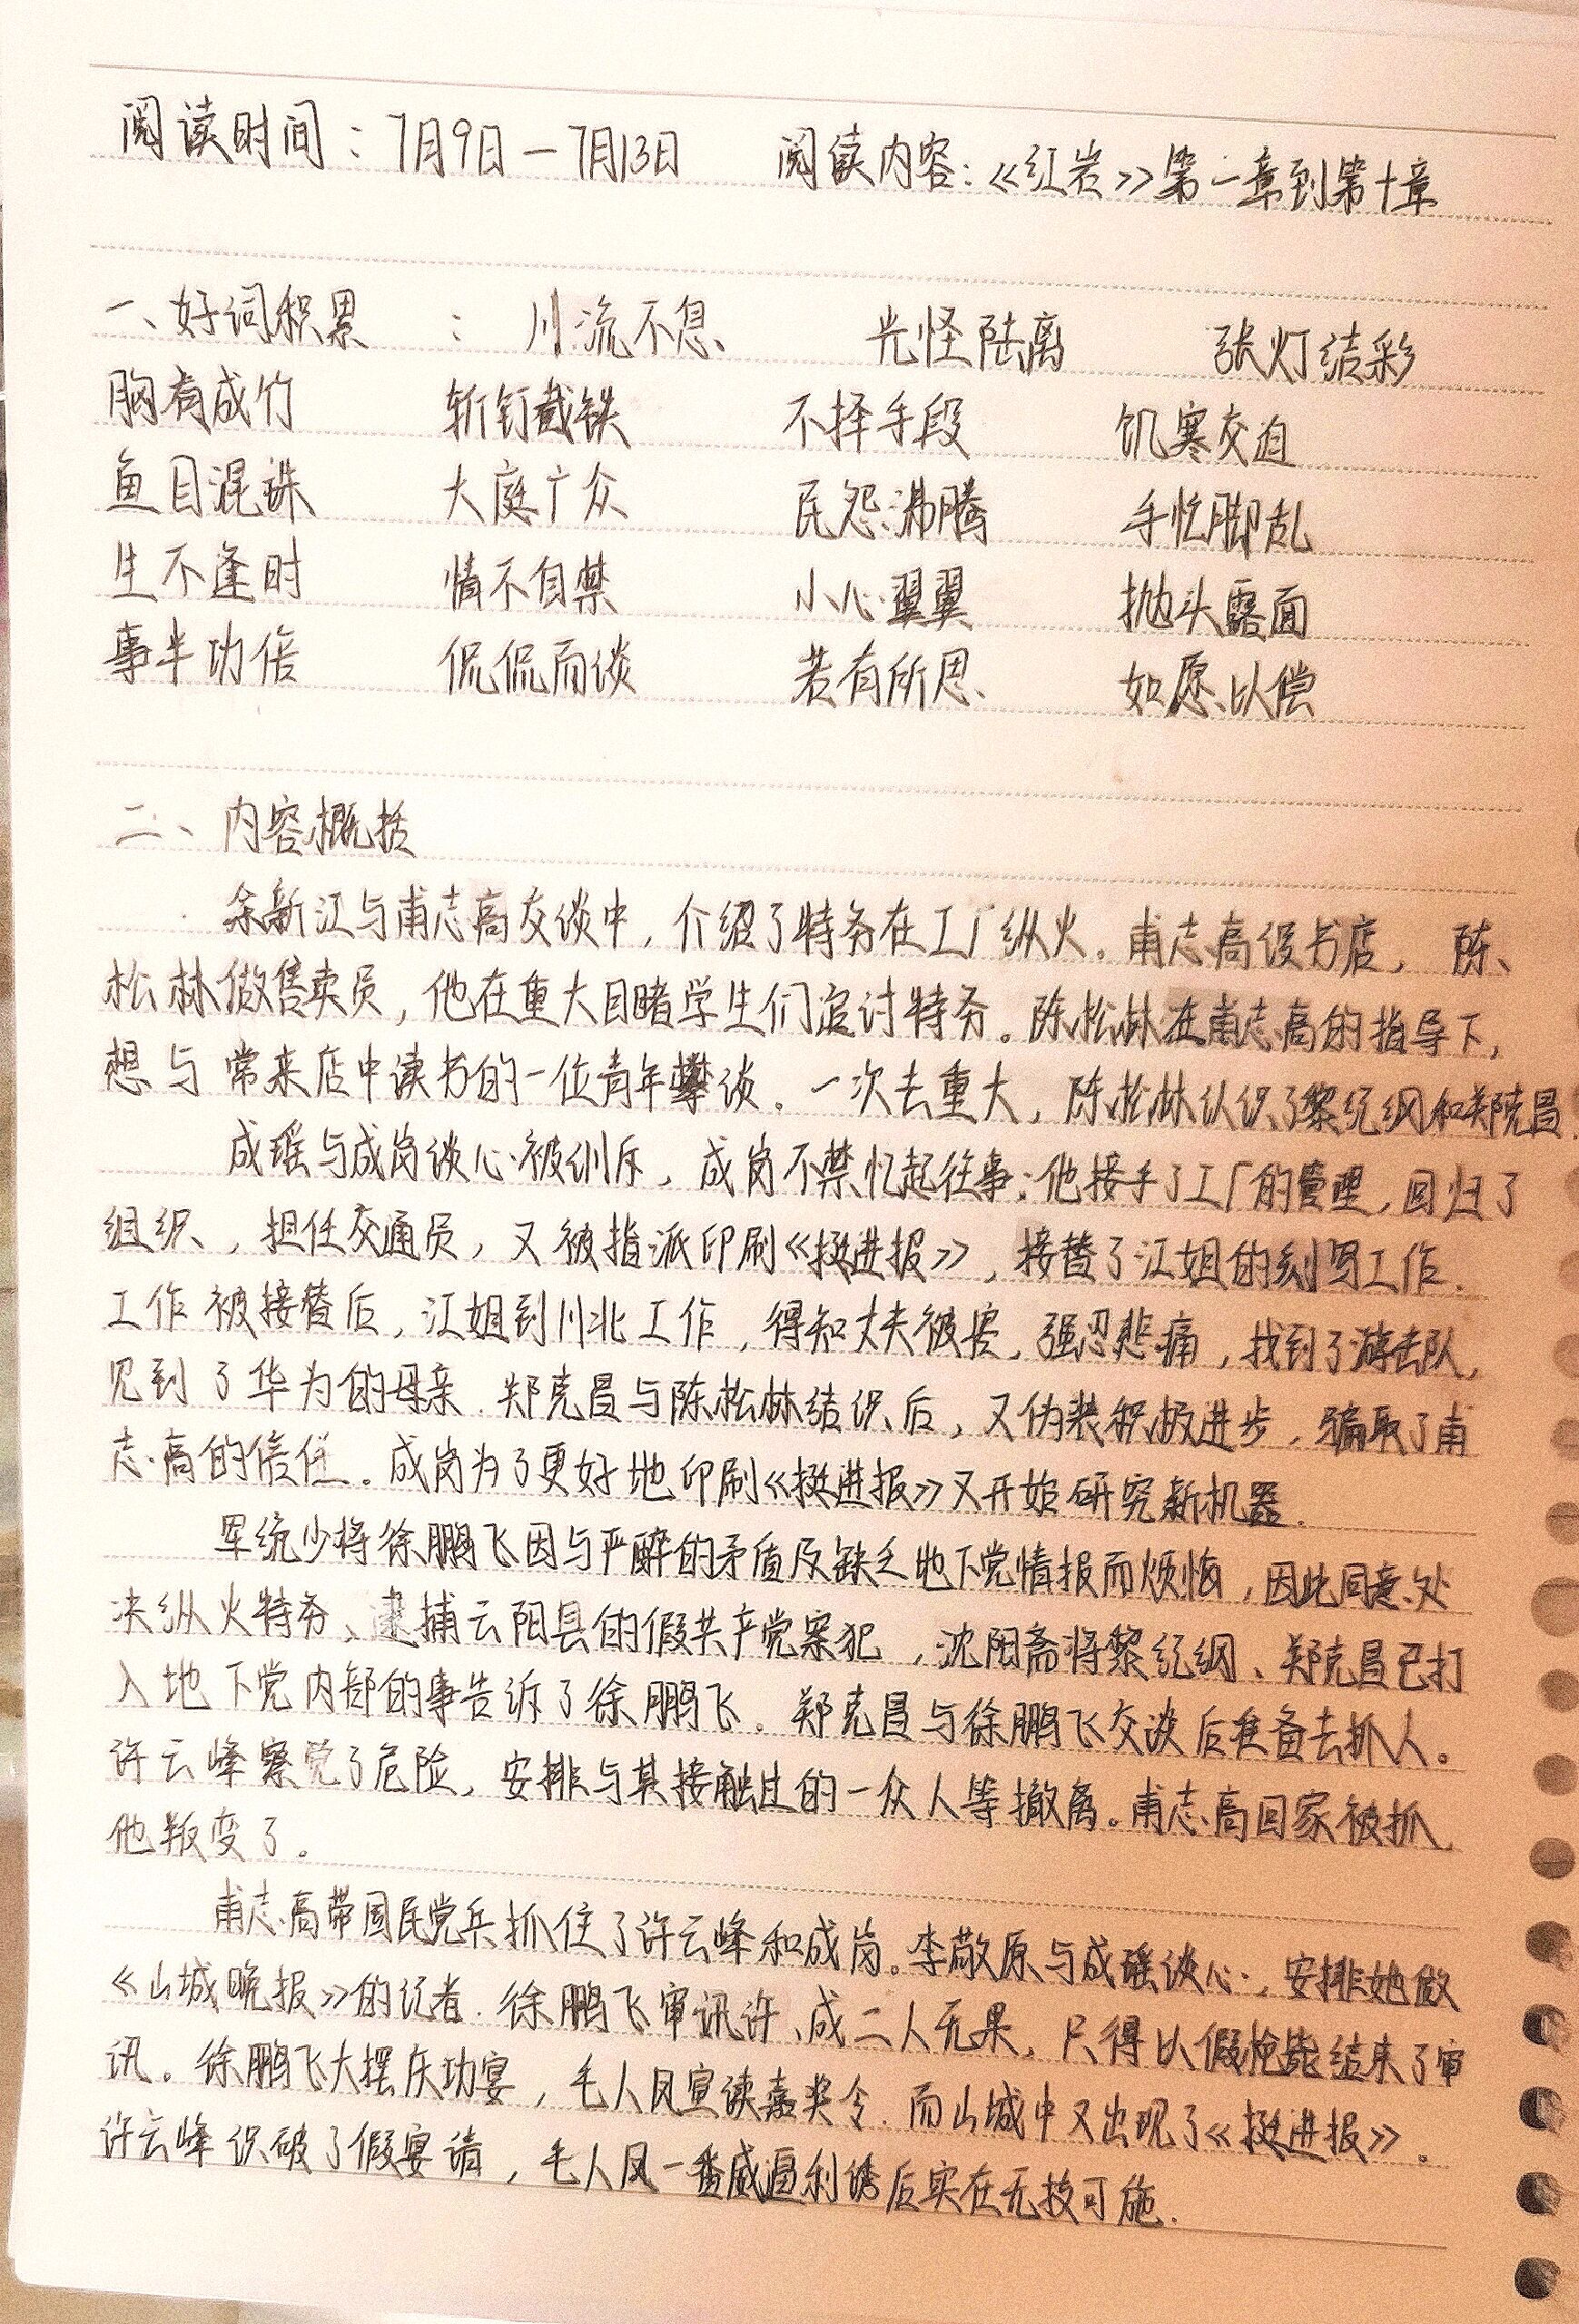 阅读时间：7月9日—7月13日 阅读内容：《红岩》第一章到第十章
一、好词积累 ： 川流不息 光怪陆离 张灯结彩
胸有成竹 斩钉截铁 不择手段 饥寒交迫
鱼目混珠 大庭广众 民怨沸腾 手忙脚乱
生不逢时 情不自禁 小心翼翼 抛头露面
事半功倍 侃侃而谈 若有所思 如愿以偿
二、内容概括
余新江与甫志高交谈中，介绍了特务在工厂纵火。甫志高设书店，陈
松林做售卖员，他在重大目睹学生们追讨特务。陈松林在甫志高的指导下，
想与常来店中读书的一位青年攀谈。一次去重大，陈松林认识了黎纪纲和郑克昌.
成瑶与成岗谈心被训斥，成岗不禁忆起往事：他接手了工厂的管理，回归了
组织，担任交通员，又被指派印刷《挺进报》，接替了江姐的刻写工作.
工作被接替后，江姐到川北工作，得知丈夫被害，强忍悲痛，找到了游击队，
见到了华为的母亲.郑克昌与陈松林结识后，又伪装积极进步，骗取了甫
志高的信任。成岗为了更好地印刷《挺进报》又开始研究新机器.
军统少将徐鹏飞因与严醉的矛盾及缺乏地下党情报而烦恼，因此同意处
决纵火特务、逮捕云阳县的假共产党案犯，沈阳斋将黎纪纲、郑克昌已打
入地下党内部的事告诉了徐鹏飞。郑克昌与徐鹏飞交谈后准备去抓人。
许云峰察觉了危险，安排与其接触过的一众人等撤离。甫志高回家被抓，
他叛变了。
甫志高带国民党兵抓住了许云峰和成岗。李敬原与成瑶谈心，安排她做
《山城晚报》的记者.徐鹏飞审讯许、成二人无果，只得以假枪毙结束了审
讯。徐鹏飞大摆庆功宴，毛人凤宣读嘉奖令.而山城中又出现了《挺进报》。
许云峰识破了假宴请，毛人凤一番威逼利诱后实在无技可施.